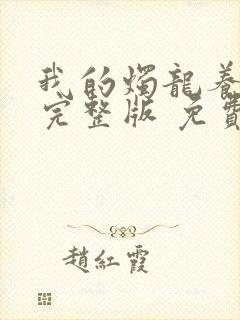 我的燭龍養
完整版 免費
趙紅霞